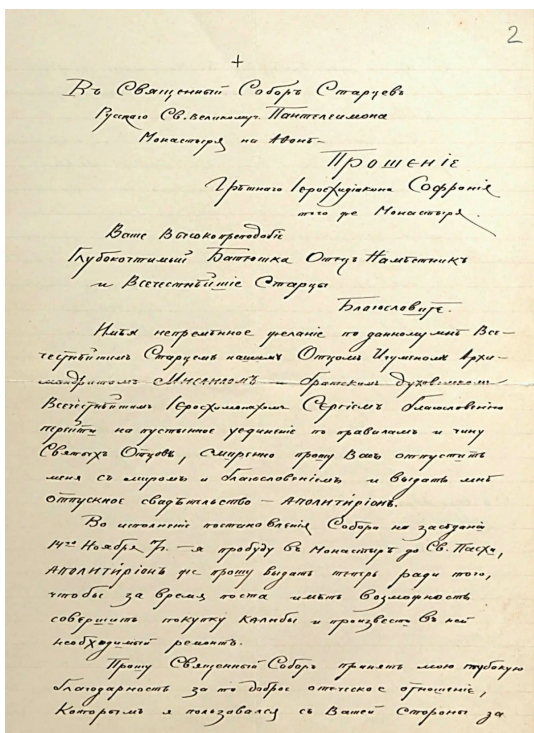 2
+
Въ Священный Соборъ Старцевъ
Русскаго Св. Великомуч. Пантелеимона
Монастыря на Авонѣ –
Прошеніе
Грѣшнаго Іеросхидіакона Софронія
того же Монастыря.
Ваше Высокопреподобіе
Глубокочтимый Батюшка Отецъ Намѣстникъ
и Всечестнѣйшіе Старцы
Благословите.
Имѣя непремѣнное желаніе по данному мнѣ Все-
честнѣйшимъ Старцемъ нашимъ Отцомъ Игуменомъ Архи-
мандритомъ Мисаиломъ – братскимъ духовникомъ
Всечестнѣйшимъ Іеросхимонахомъ Сергіемъ благословенію
перейти на пустынное уединеніе по правиламъ и чину
Святыхъ Отцовъ, смиренно прошу Васъ отпустить
меня съ миромъ и благословеніемъ и выдать мнѣ
отпускное свидѣтельство – Аполитиріонъ.
Во исполненіе постановленія Собора на засѣданіи
14го Ноября – я пробуду въ Монастырѣ до Св. Пасхи,
Аполитиріонъ же прошу выдать теперь ради того,
чтобы за время поста имѣть возможность
совершить покупку калибы и произвести въ ней
необходимый ремонтъ.
Прошу Священный Соборъ принять мою глубокую
благодарность за то доброе отеческое отношеніе,
Которымъ я пользовался съ Вашей Стороны за